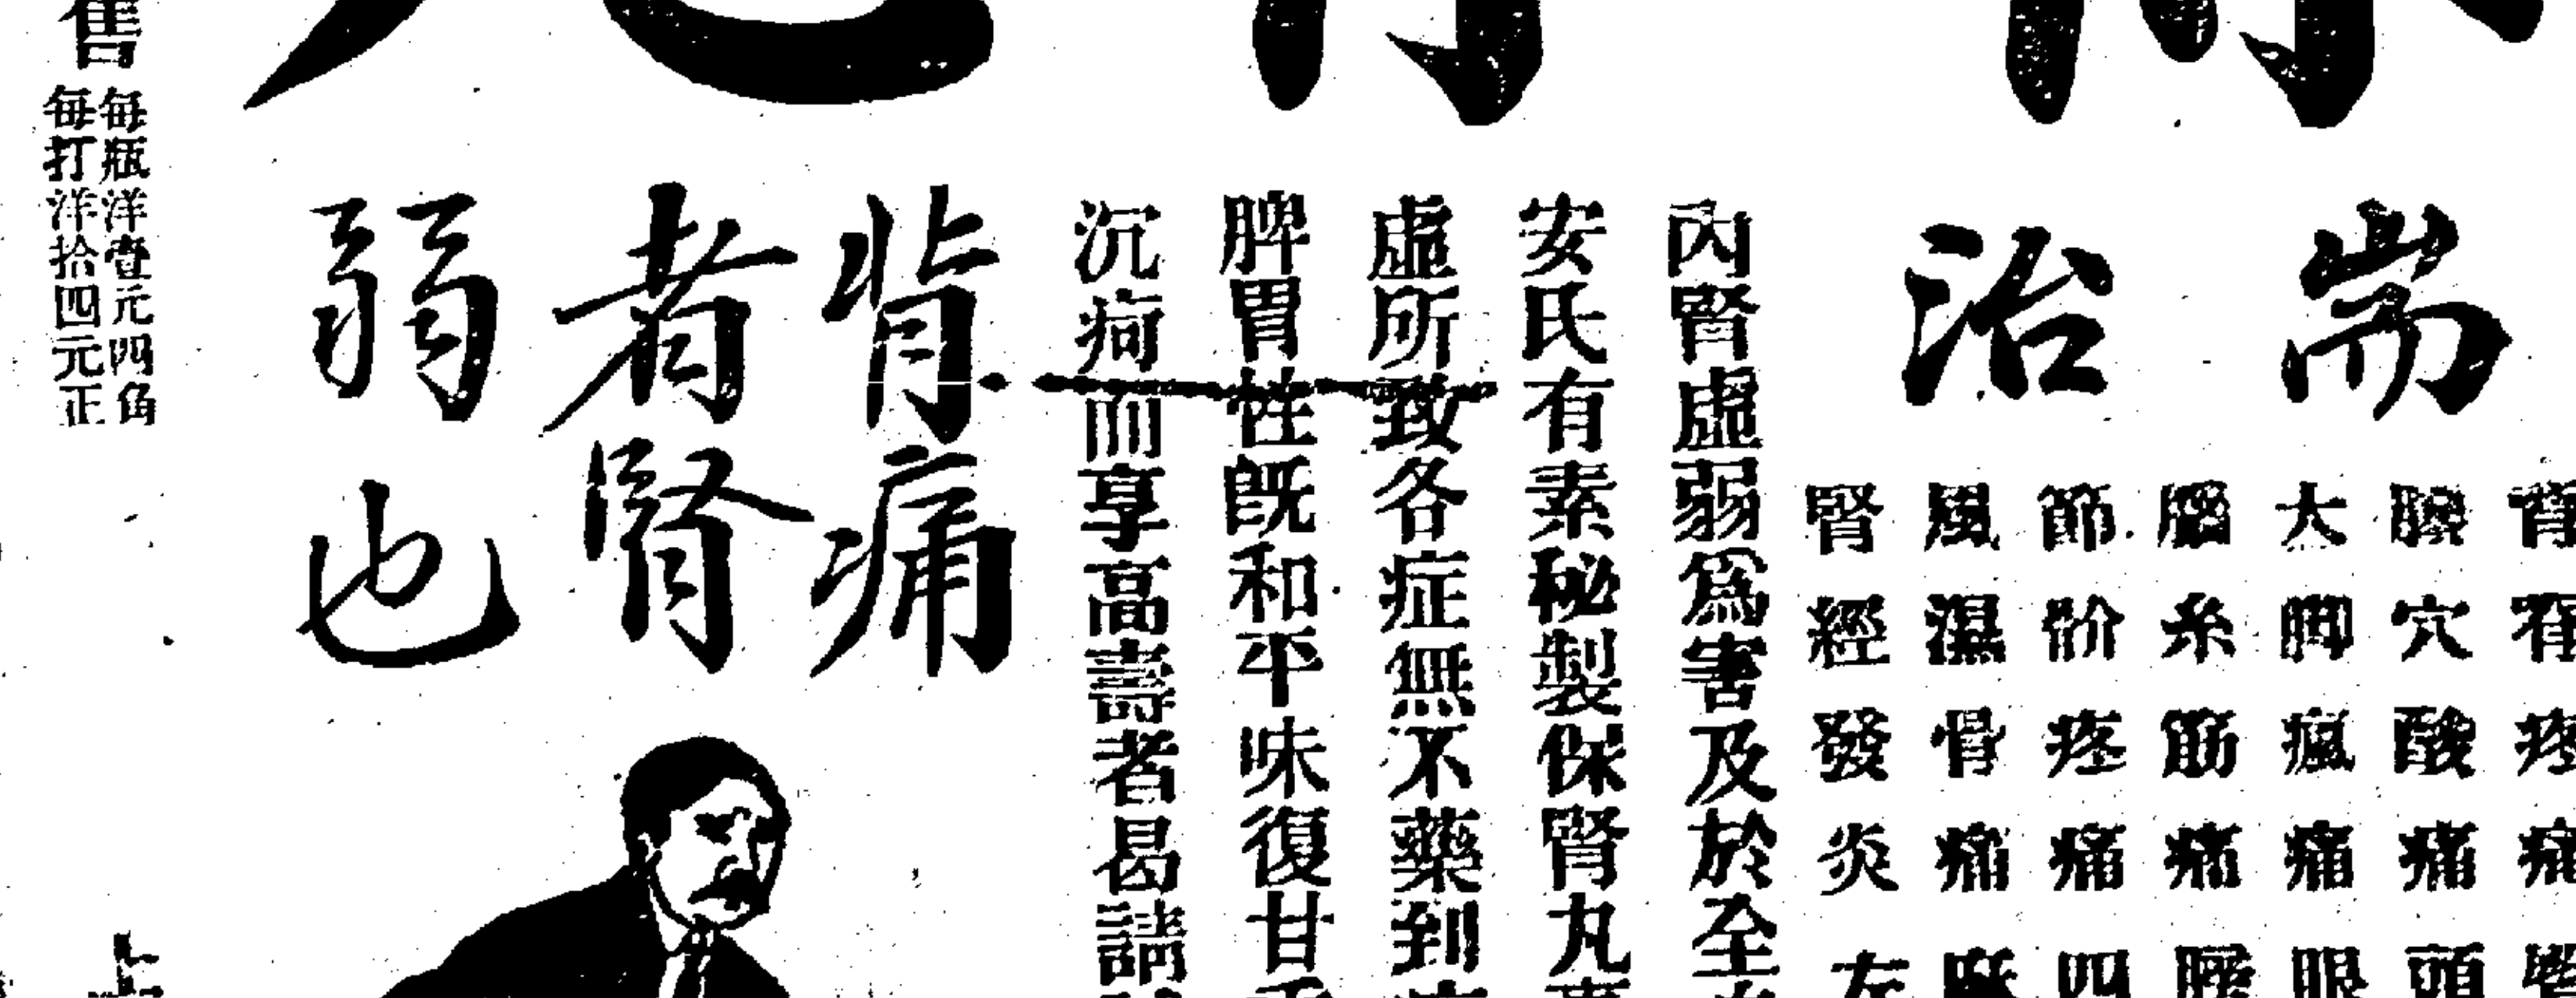 耑治
腰穴酸痛
大脚瘋痛 眼
腦糸筋痛 腰
節骱疼痛 四
風濕骨痛
腎經發炎 左
內腎虛弱爲害及於全
安氏有素秘製保腎丸
虛所致各症無不藥到
脾胃性既和平味復甘
沉疴而享高壽者曷請
背痛
者腎
弱也
售
每瓶洋壹元四角
每打洋拾四元正